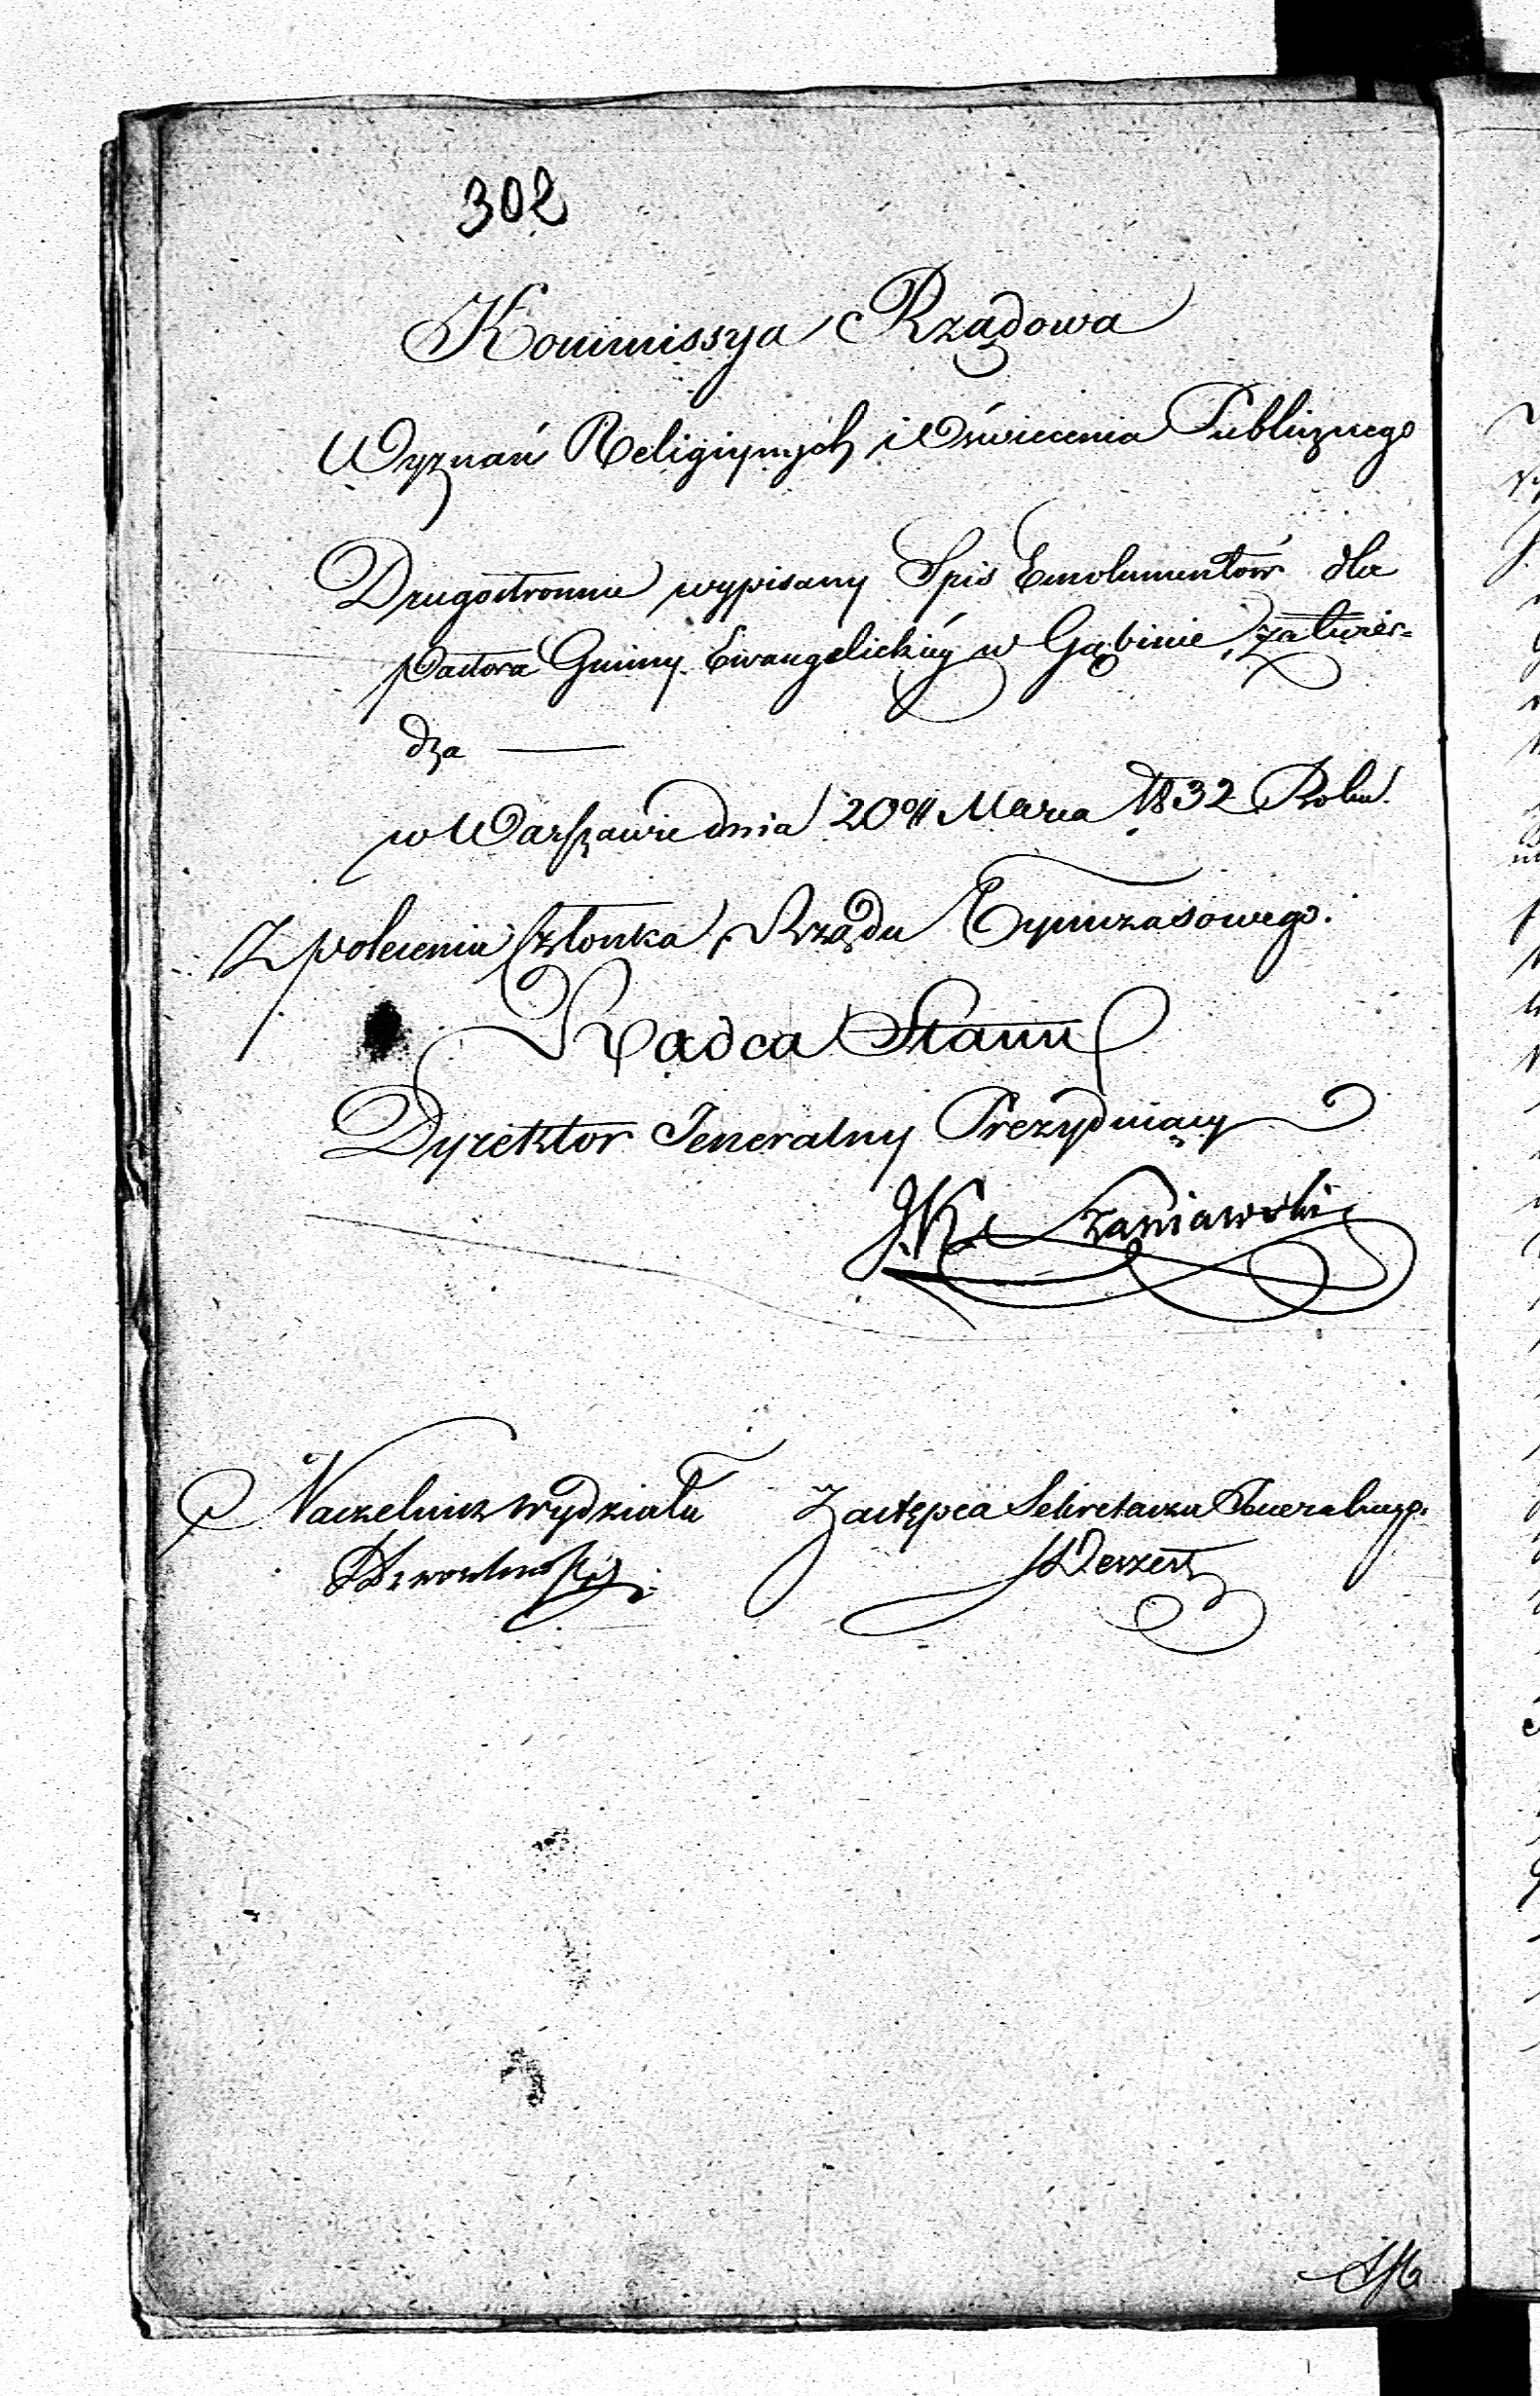 302
Kommissya Rządowa
Wyznań Religiynych i Oświecenia Publicznego
Drugostronnie wypisany Spis Emolumentów dla
Pastora Gminy Ewangelickiey w Gąbinie, zatwier=
dza —
w Warszawie dnia 20go Marca 1832 Roku.
Z polecenia Członka Rządu Tymczasowego.
Radca Stanu
Dyrektor Jeneralny Prezyduiący
J. K. Szaniawski
Naczelnik Wydziału Zastępca Sekretarza Jeneralnego.